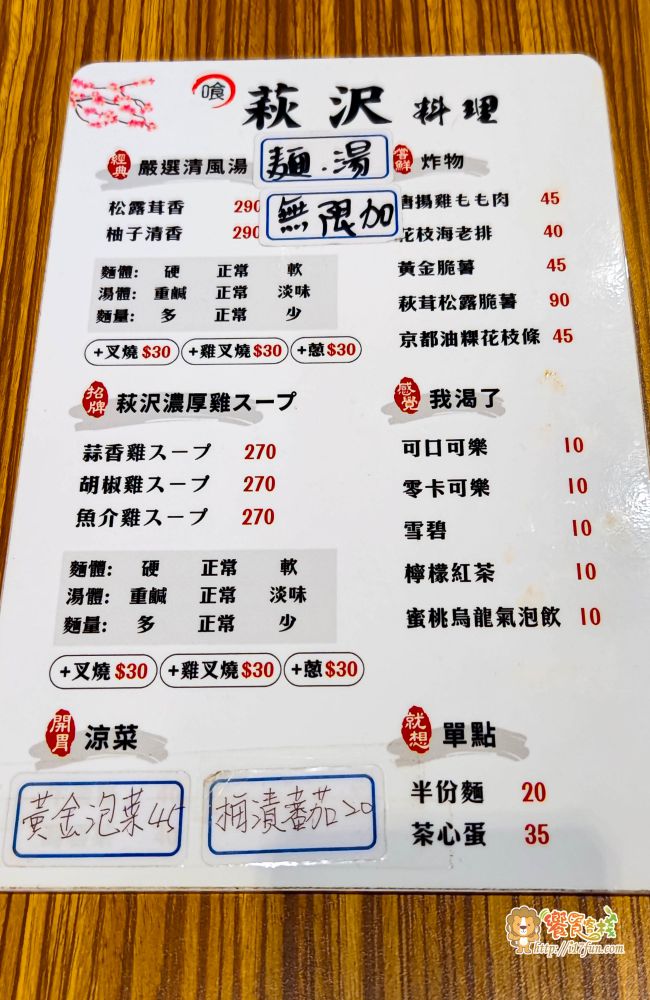 喰 萩沢料理
經典 嚴選清風湯
麵.湯
無限加
松露茸香 290
柚子清香 290
麵體: 硬 正常 軟
湯體: 重鹹 正常 淡味
麵量: 多 正常 少
+叉燒$30 +雞叉燒$30 +蔥$30
招牌 萩沢濃厚雞スープ
蒜香雞スープ 270
胡椒雞スープ 270
魚介雞スープ 270
麵體: 硬 正常 軟
湯體: 重鹹 正常 淡味
麵量: 多 正常 少
+叉燒$30 +雞叉燒$30 +蔥$30
開胃 涼菜
黃金泡菜45
梅漬蕃茄20
嘗鮮 炸物
唐揚雞もも肉 45
花枝海老排 40
黃金脆薯 45
萩茸松露脆薯 90
京都油粿花枝條 45
感覺 我渴了
可口可樂 10
零卡可樂 10
雪碧 10
檸檬紅茶 10
蜜桃烏龍氣泡飲 10
就想 單點
半份麵 20
茶心蛋 35
http://i17fun.com